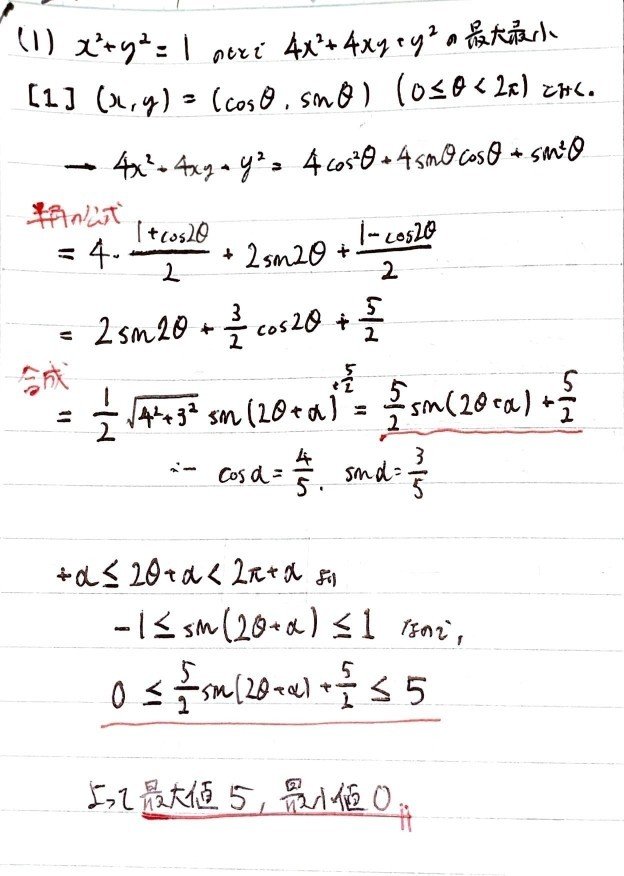 (1) x²+y²=1 のとき 4x²+4xy+y² の最大最小
[1] (x,y) = (cosθ, sinθ) (0≤θ<2π) とおく.
→ 4x²+4xy+y² = 4cos²θ+4sinθcosθ+sin²θ
半角の公式
= 4・(1+cos2θ)/2 + 2sin2θ + (1-cos2θ)/2
= 2sin2θ + 3/2 cos2θ + 5/2
合成
= 1/2 √(4²+3²) sin(2θ+α) +5/2 = 5/2 sin(2θ+α) + 5/2
∵ cosα=4/5, sinα=3/5
+α≤2θ+α<2π+α より
-1≤sin(2θ+α)≤1 なので,
0 ≤ 5/2 sin(2θ+α) + 5/2 ≤ 5
よって最大値 5, 最小値 0